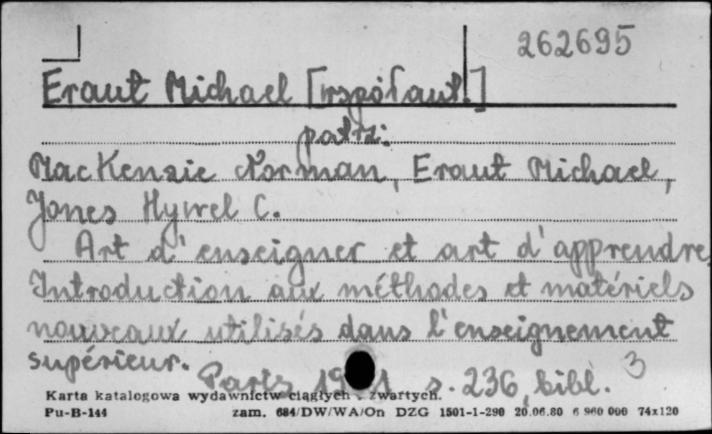 262695
Eraut Michael [współaut.]
patrz:
MacKenzie Norman, Eraut Michael,
Jones Hywel C.
Art d'enseigner et art d'apprendre.
Introduction aux méthodes et matériels
nouveaux utilisés dans l'enseignement
supérieur.
3
s. 236, bibl.
Karta katalogowa wydawnictw ciągłych - zwartych.
Pu-B-144 zam. 684/DW/WA/On DZG 1501-1-290 20.06.80 6 960 000 74x120